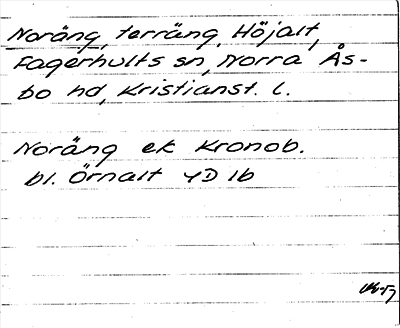 Noräng, terräng, Höjalt,
Fagerhults sn, Norra Ås-
bo hd, Kristianst. l.
Noräng ek Kronob.
bl. Örnalt 4D 1b